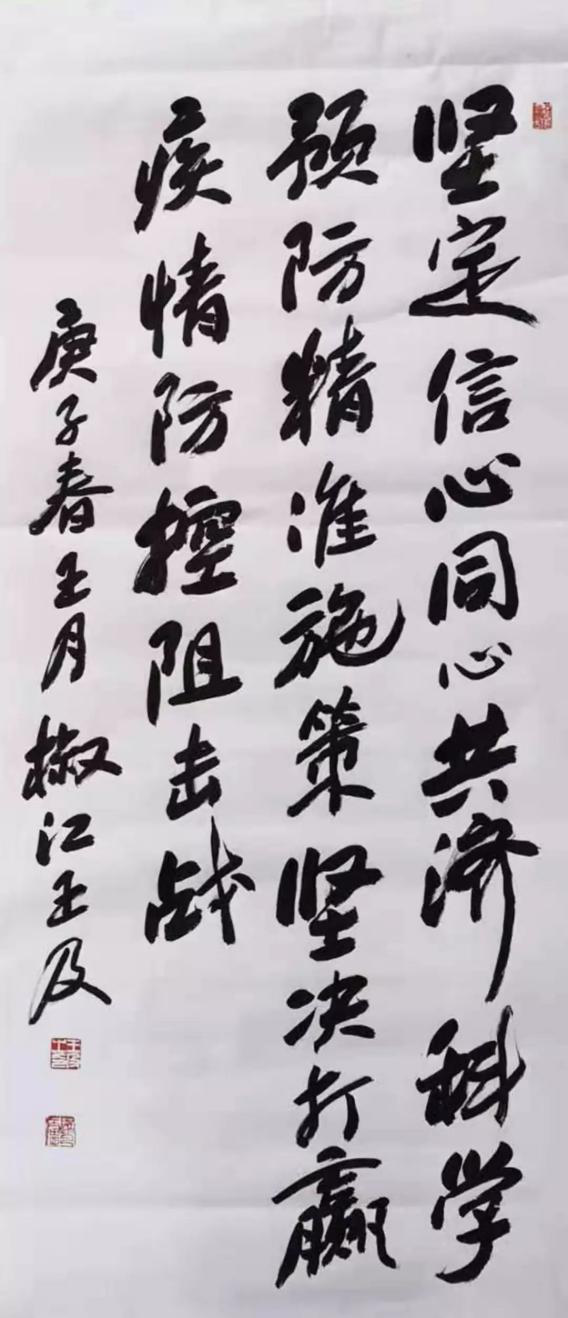 坚定信心同心共济科学
预防精准施策坚决打赢
疫情防控阻击战
庚子春王月椒江王及